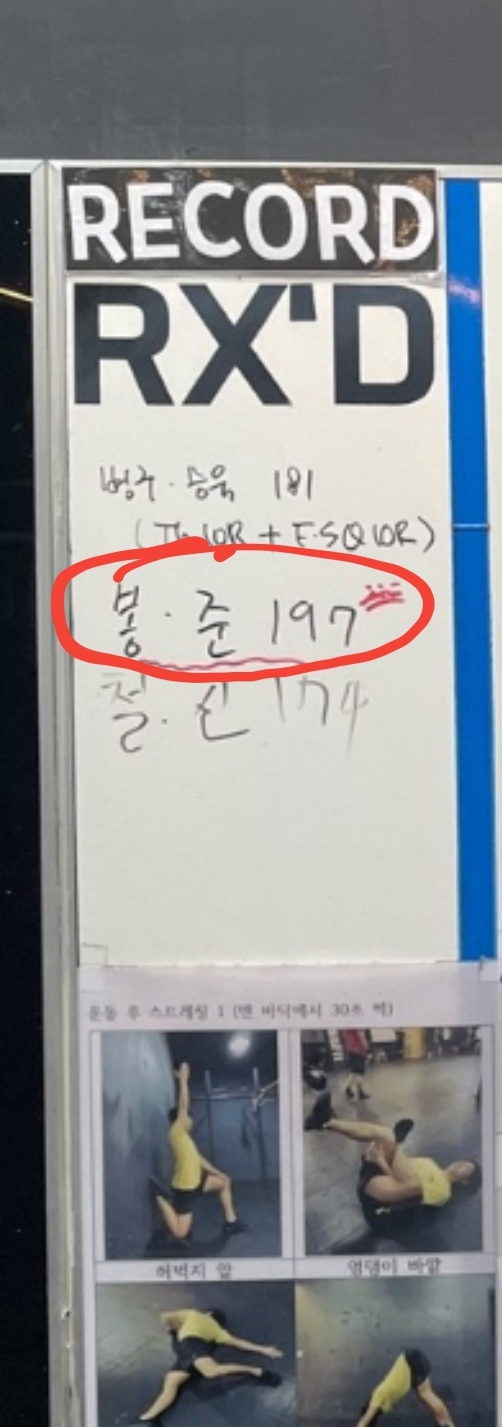 RECORD
RX'D
병주 · 승욱 181
(Th 10R + F.SQ 10R)
봉 · 준 197
철 · 신 174
운동 후 스트레칭 1 (맨 바닥에서 30초 씩)
허벅지 앞
엉덩이 바깥